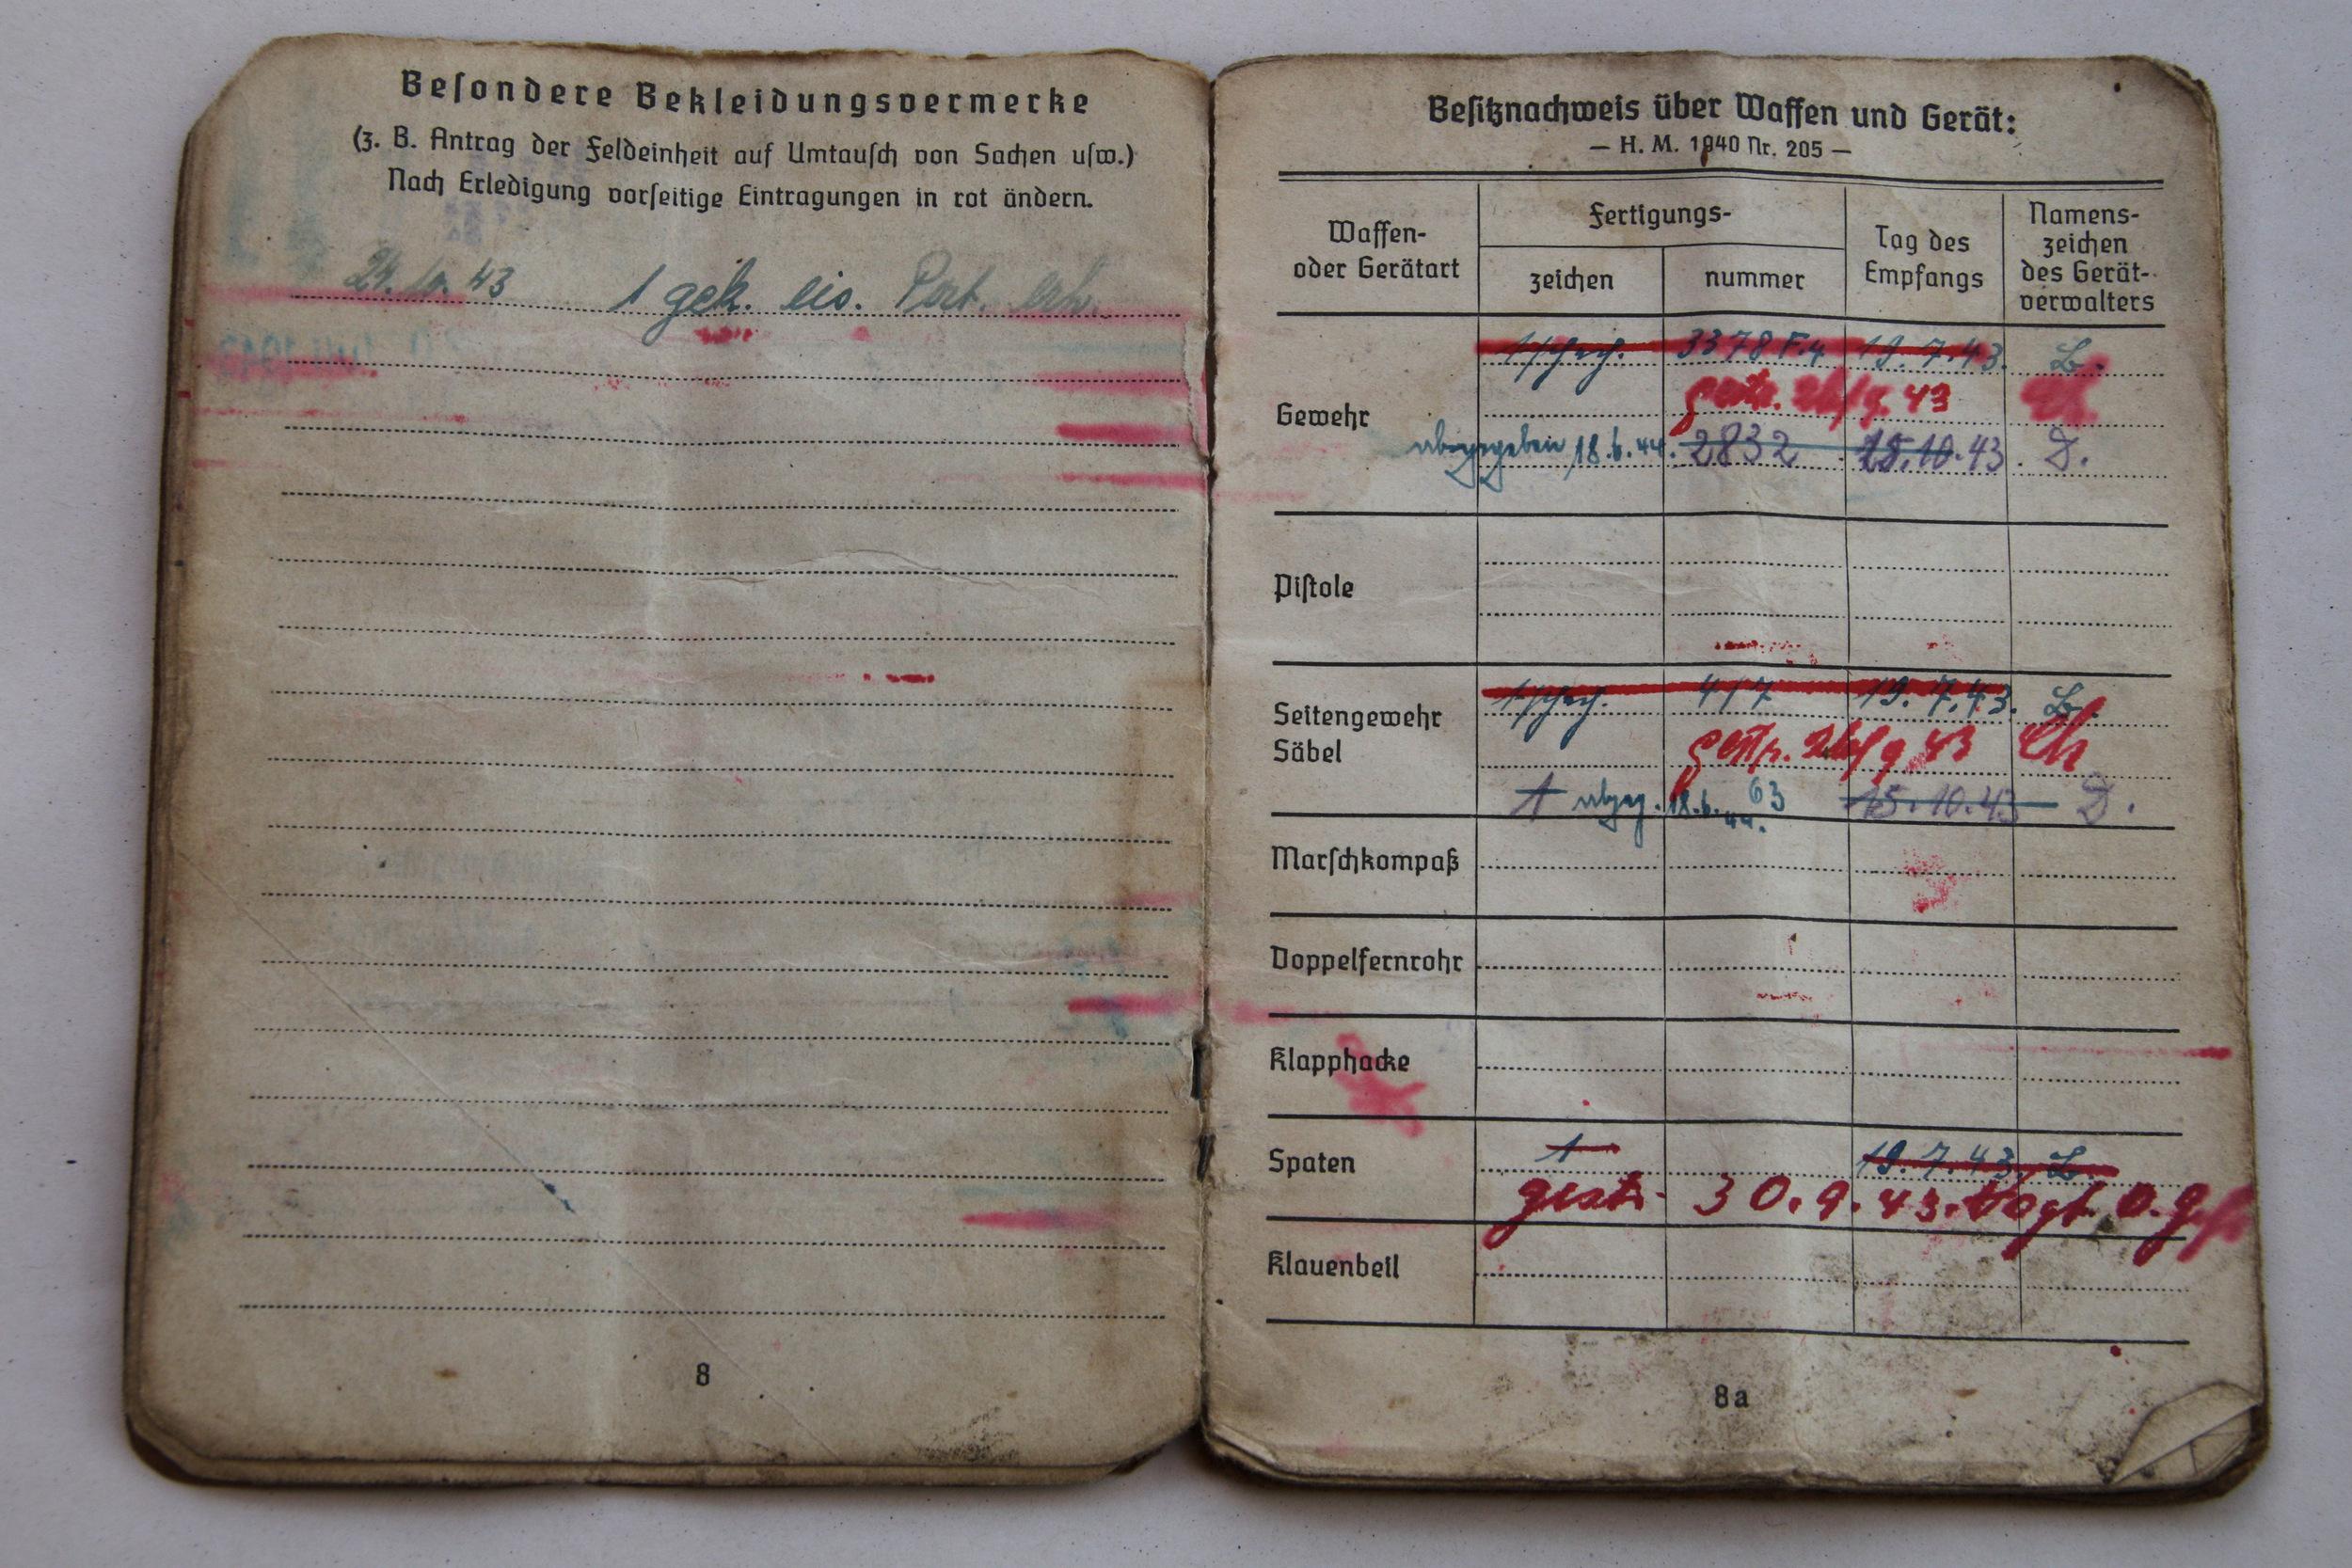 Besondere Bekleidungsvermerke
(z. B. Antrag der Feldeinheit auf Umtausch von Sachen usw.)
Nach Erledigung vorseitige Eintragungen in rot ändern.
24. 10. 43 1 gek. eis. Port. erh.
8
Besitznachweis über Waffen und Gerät:
— H. M. 1940 Nr. 205 —
Waffen- oder Gerätart
Fertigungs-
zeichen
nummer
Tag des Empfangs
Namens-
zeichen
des Gerät-
verwalters
3378 F.4 19.7.43. L.
gestr. 43
Gewehr
abgegeben 18.6.44. 2832 15.10.43. D.
Pistole
417 19.7.43. L.
Seitengewehr
Säbel
gestr. 9 43
1 abgeg. 18.6.44. 63 15.10.43 D.
Marschkompaß
Doppelfernrohr
Klapphacke
Spaten 1 19.7.43. L.
gestr. 30.9.43. Vogt O.
Klauenbeil
8a